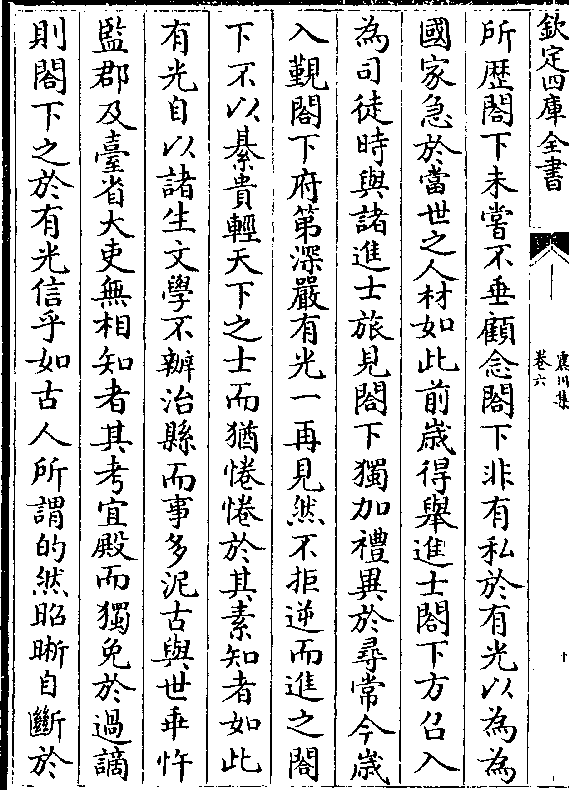 欽定四庫全書
震川集
卷六
十
所歴閣下未嘗不垂顧念閣下非有私於有光以為為
國家急於當世之人材如此前歳得舉進士閣下方召入
為司徒時與諸進士旅見閣下獨加禮異於尋常今歳
入覲閣下府第深嚴有光一再見然不拒逆而進之閣
下不以綦貴輕天下之士而猶惓惓於其素知者如此
有光自以諸生文學不辦治縣而事多泥古與世乖忤
監郡及臺省大吏無相知者其考宜殿而獨免於過謫
則閣下之於有光信乎如古人所謂的然昭晣自斷於